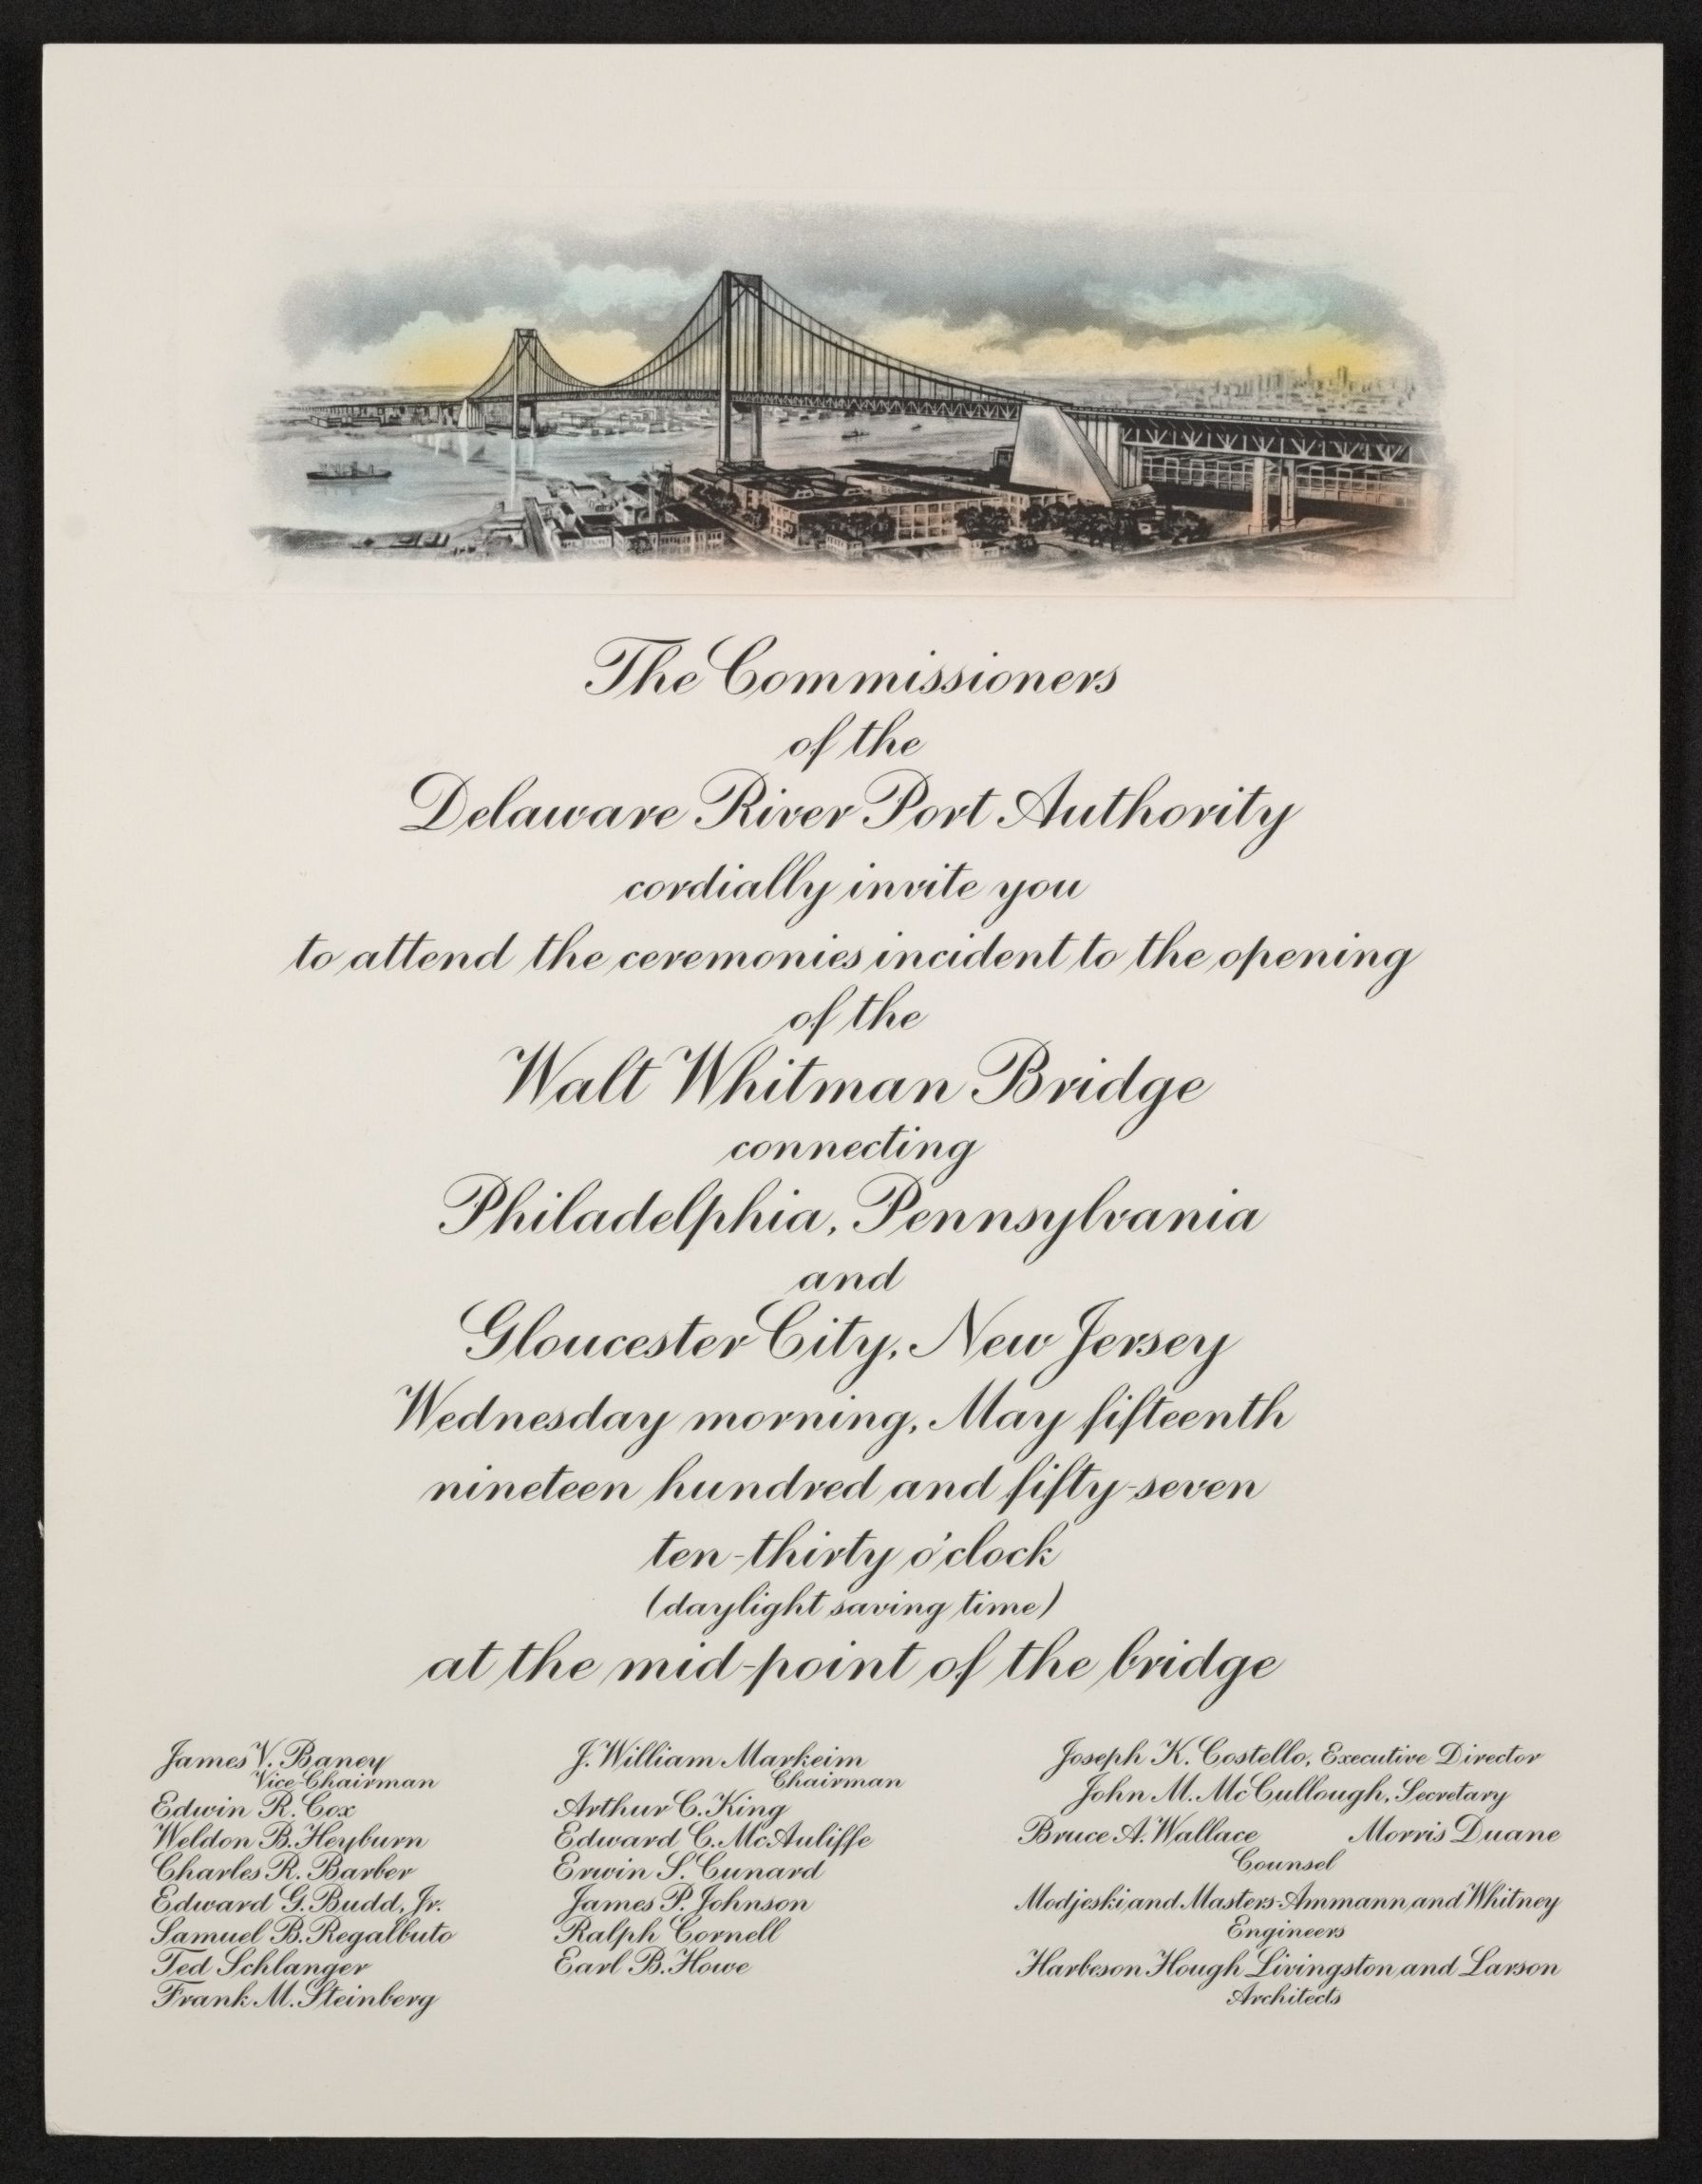 The Commissioners
of the
Delaware River Port Authority
cordially invite you
to attend the ceremonies incident to the opening
of the
Walt Whitman Bridge
connecting
Philadelphia, Pennsylvania
and
Gloucester City, New Jersey
Wednesday morning, May fifteenth
nineteen hundred and fifty-seven
ten-thirty o'clock
(daylight saving time)
at the mid-point of the bridge
James V. Baney
Vice-Chairman
Edwin R. Cox
Weldon B. Heyburn
Charles R. Barber
Edward G. Budd, Jr.
Samuel B. Regalbuto
Ted Schlanger
Frank M. Steinberg
J. William Markeim
Chairman
Arthur C. King
Edward C. McAuliffe
Erwin S. Cunard
James P. Johnson
Ralph Cornell
Earl B. Howe
Joseph K. Costello, Executive Director
John M. McCullough, Secretary
Bruce A. Wallace Morris Duane
Counsel
Modjeski and Masters-Ammann and Whitney
Engineers
Harbeson Hough Livingston and Larson
Architects